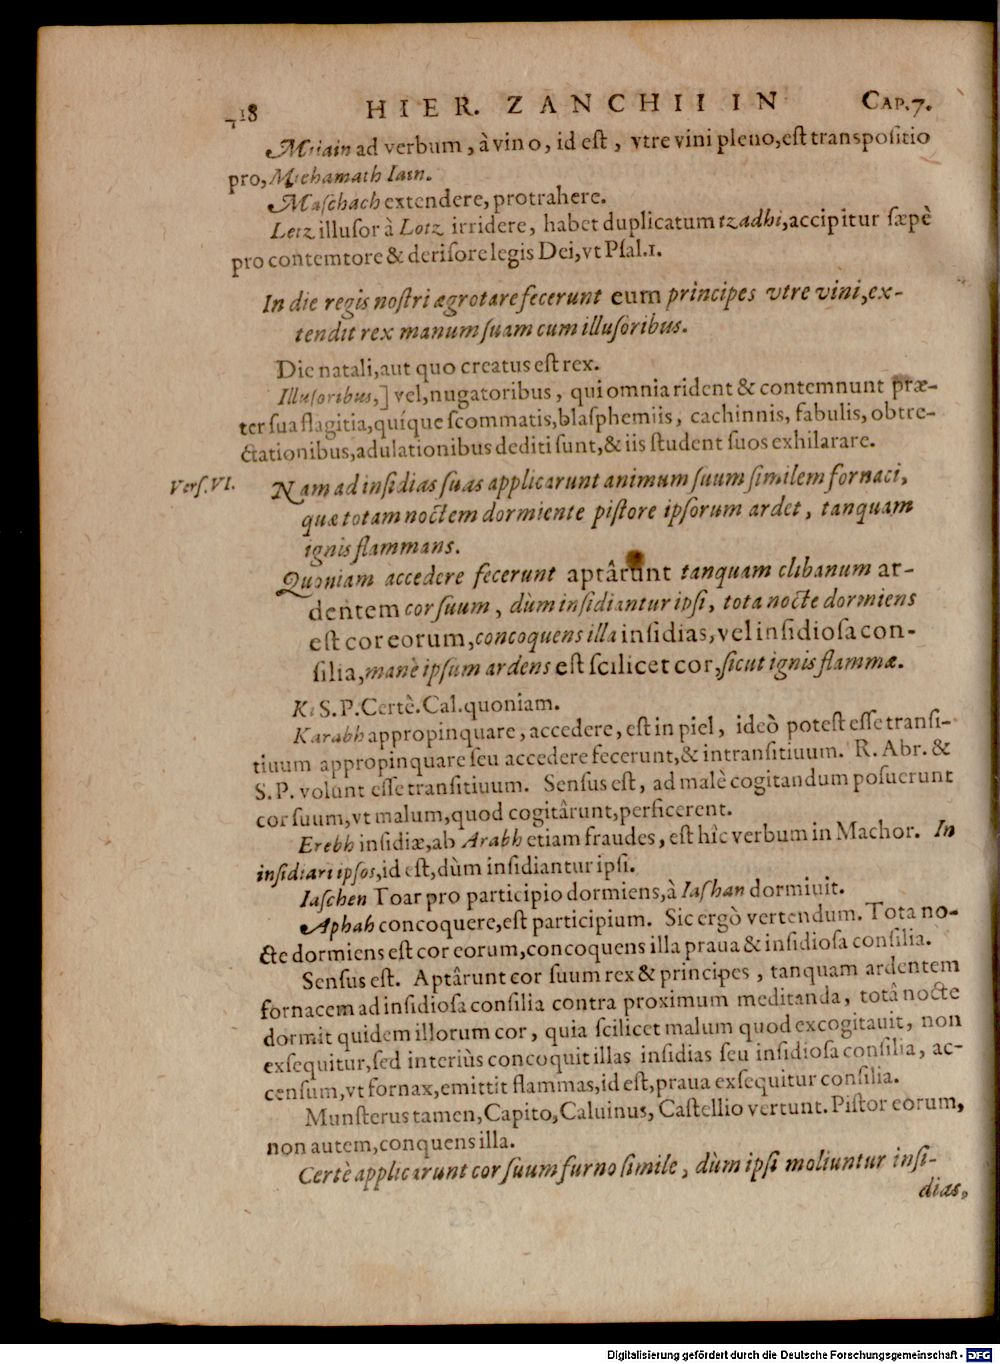 418 HIER. ZANCHII IN CAP.7.
Miiain ad verbum, à vino, id eſt, vtre vini pleno, eſt transpoſitio
pro, Miehamath Iain.
Maſchach extendere, protrahere.
Letz illuſor à Lotz irridere, habet duplicatum tzadhi, accipitur ſæpè
pro contemtore & deriſore legis Dei, vt Pſal.1.
In die regis noſtri ægrotare fecerunt eum principes vtre vini, ex-
tendit rex manum ſuam cum illuſoribus.
Die natali, aut quo creatus eſt rex.
Illuſoribus,] vel, nugatoribus, qui omnia rident & contemnunt præ-
ter ſua flagitia, quíque ſcommatis, blaſphemiis, cachinnis, fabulis, obtre-
ctationibus, adulationibus dediti ſunt, & iis ſtudent ſuos exhilarare.
Verſ.VI. Nam ad inſidias ſuas applicarunt animum ſuum ſimilem fornaci,
quæ totam noctem dormiente piſtore ipſorum ardet, tanquam
ignis flammans.
Quoniam accedere fecerunt aptârunt tanquam clibanum ar-
dentem cor ſuum, dùm inſidiantur ipſi, tota nocte dormiens
eſt cor eorum, concoquens illa inſidias, vel inſidioſa con-
ſilia, manè ipſum ardens eſt ſcilicet cor, ſicut ignis flammæ.
Ki S.P. Certè. Cal. quoniam.
Karabh appropinquare, accedere, eſt in piel, ideò poteſt eſſe tranſi-
tiuum appropinquare ſeu accedere fecerunt, & intranſitiuum. R. Abr. &
S.P. volunt eſſe tranſitiuum. Senſus eſt, ad malè cogitandum poſuerunt
cor ſuum, vt malum, quod cogitârunt, perficerent.
Erebh inſidiæ, ab Arabh etiam fraudes, eſt hîc verbum in Machor. In
inſidiari ipſos, id eſt, dùm inſidiantur ipſi.
Iaſchen Toar pro participio dormiens, à Iaſhan dormiuit.
Aphah concoquere, eſt participium. Sic ergò vertendum. Tota no-
cte dormiens eſt cor eorum, concoquens illa praua & inſidioſa conſilia.
Senſus eſt. Aptârunt cor ſuum rex & principes, tanquam ardentem
fornacem ad inſidioſa conſilia contra proximum meditanda, totâ nocte
dormit quidem illorum cor, quia ſcilicet malum quod excogitauit, non
exſequitur, ſed interiùs concoquit illas inſidias ſeu inſidioſa conſilia, ac-
cenſum, vt fornax, emittit flammas, id eſt, praua exſequitur conſilia.
Munſterus tamen, Capito, Caluinus, Caſtellio vertunt. Piſtor eorum,
non autem, conquens illa.
Certè applicarunt cor ſuum furno ſimile, dùm ipſi moliuntur inſi-
dias,
Digitalisierung gefördert durch die Deutsche Forschungsgemeinschaft - DFG